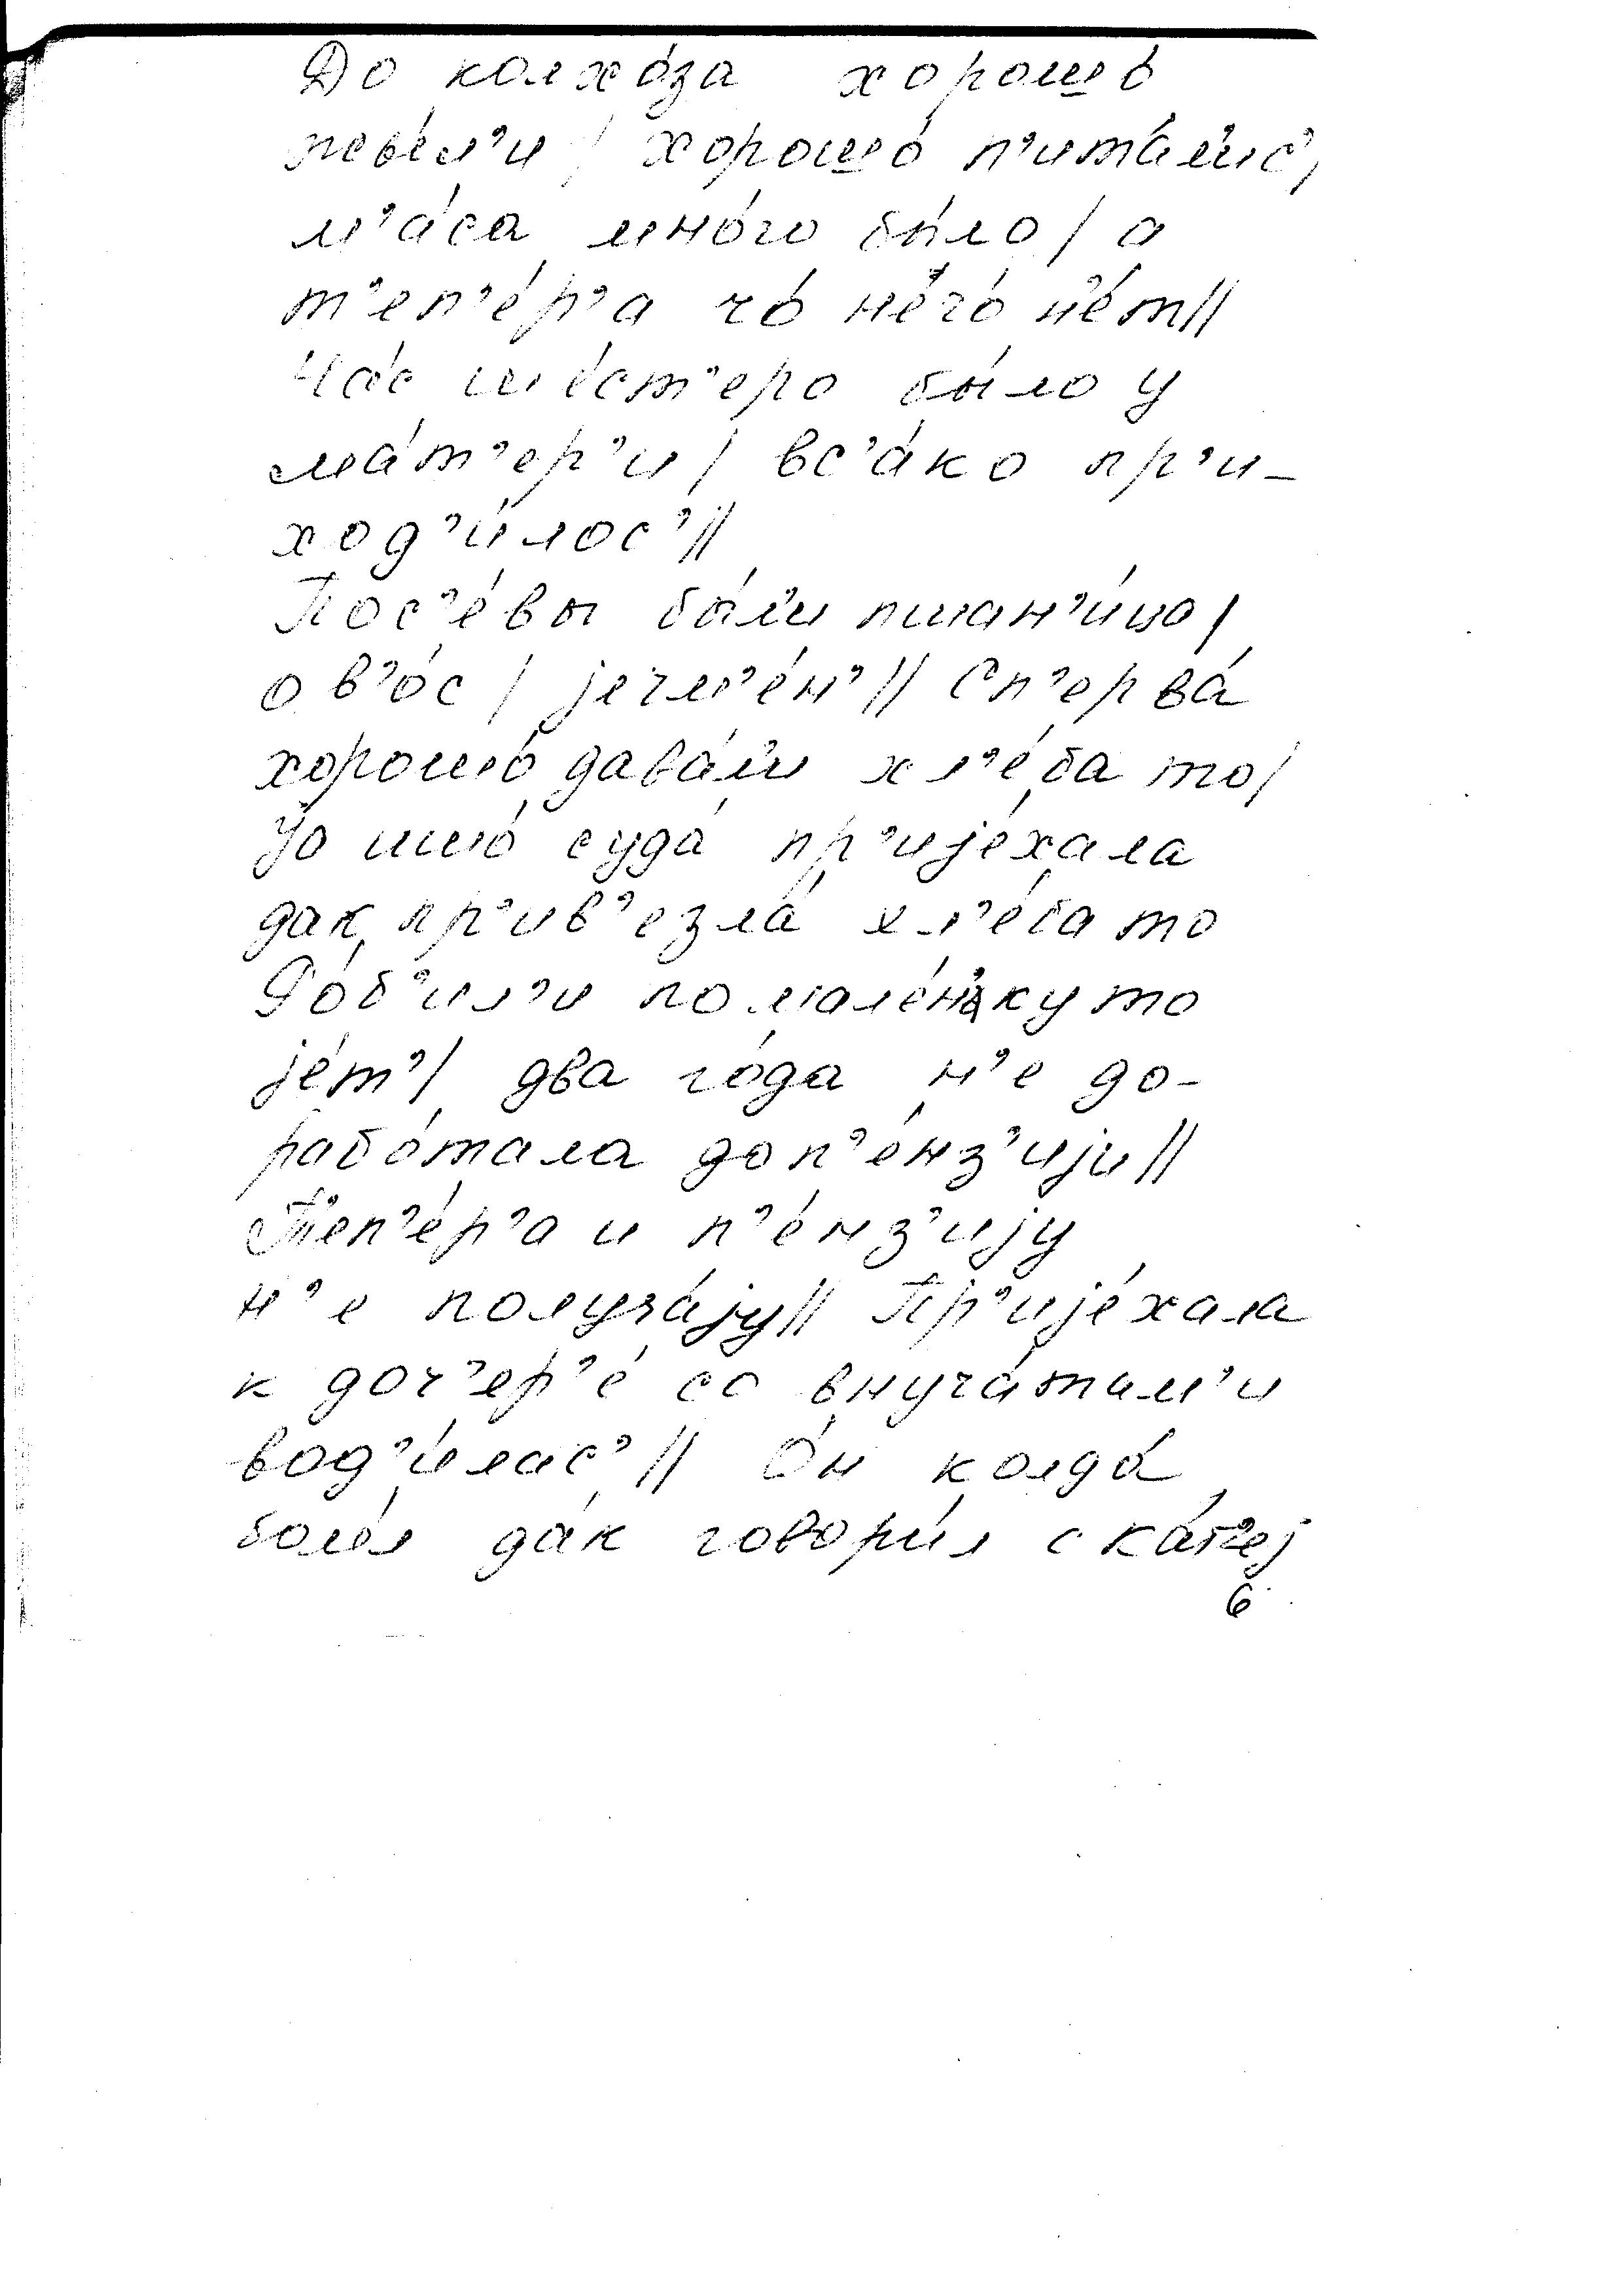 До колхо́за хорошо́
ревє́л'и / хорошо́ п'ита́л'ис',
м'а́са мно́го бы́ло / а
т'еп'е́р'а чо́ н'ečо́ н'е́т //
На́с ше́ст'еро бы́ло у
ма́т'ер'и / вс'а́ко пр'и-
ход'и́лос' //
Пос'е́вы бы́л'и пшан'и́цо /
ов'о́с / јечм'е́н' // Сп'ерва́
хорошо́ дава́л'и хл'е́ба то /
Јо шшо́ суда́ пр'ије́хала
дак пр'ив'езла́ хл'е́ба то
Ро́б'ил'и помале́н'ку то
је́т' / два го́да н'е до-
рабо́тала доп'е́нз'ији //
Т'еп'е́р'а и п'е́нз'ију
н'е получа́ју // Пр'ије́хала
к доч'ер'е́ со внуча́там'и
вод'и́лас' // О́н колда́
боле́л да́к говори́л с ка́т'еј
6